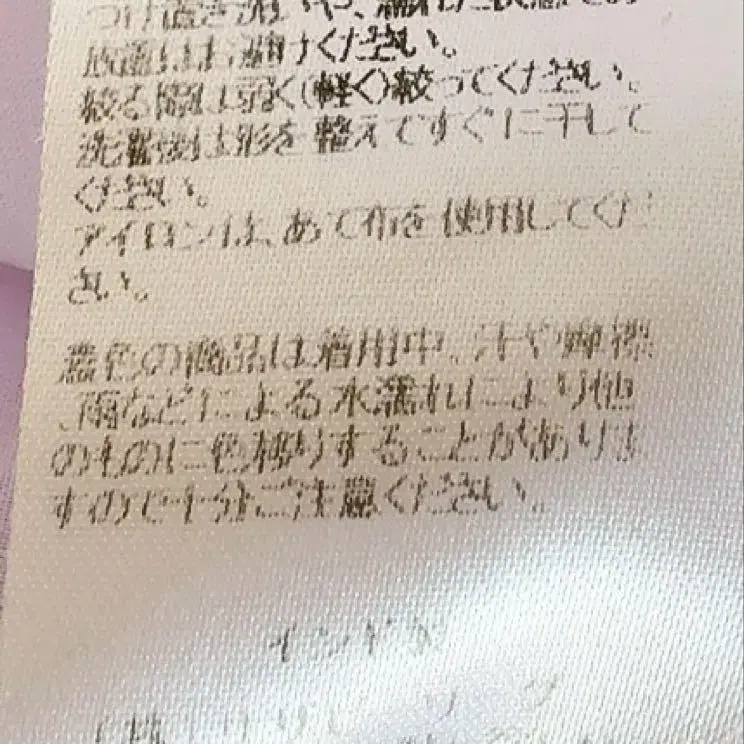 つけ置き洗いや、濡れた状態での
放置はお避けください。
絞る際は弱く(軽く)絞ってください。
洗濯後は形を整えてすぐに干して
ください。
アイロンは、あて布を使用してくだ
さい。
濃色の商品は着用中、汗や摩擦
、雨などによる水濡れにより他
のものに色移りすることがありま
すので十分ご注意ください。
インド製